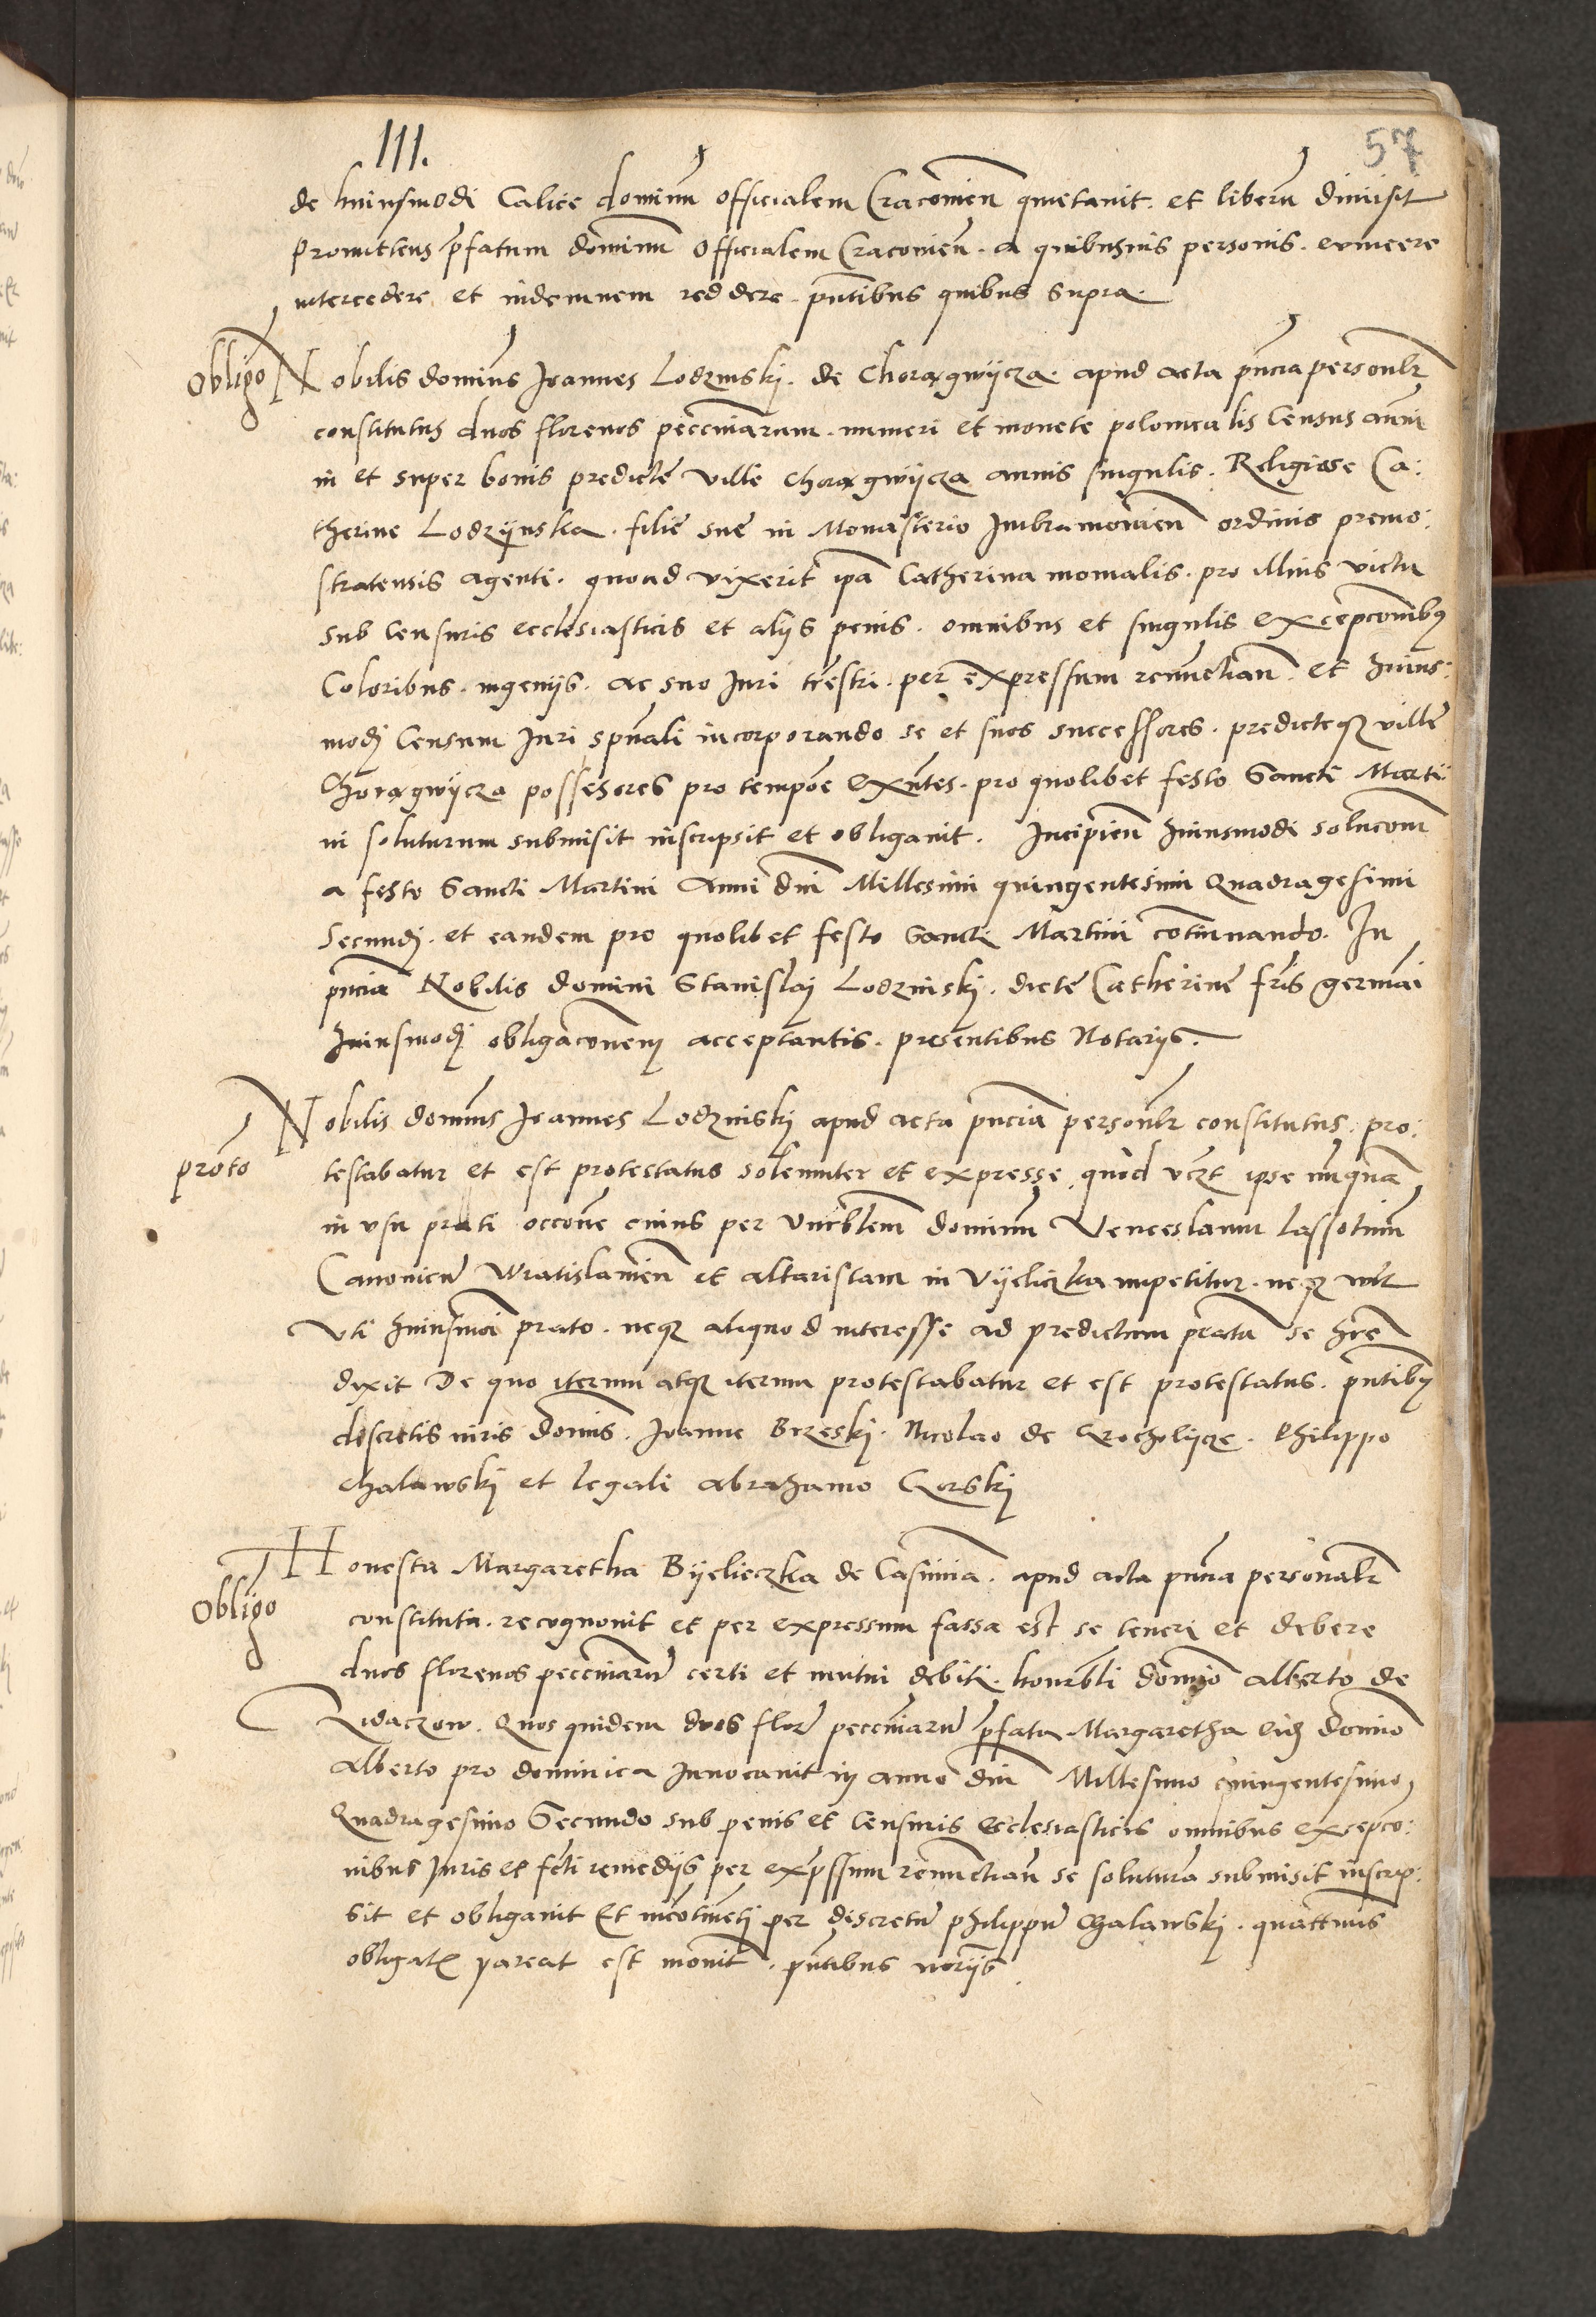 III.
57
de huiusmodi Calice dominũ officialem Cracouieñ quietauit. et liberũ dimisit
Promittens p̃fatum dominũ Officialem Cracouieñ. a quibusuis personis. euincere
intercedere et indemnem reddere. pñtibus quibus supra.
Obligo
Nobilis dominus Joannes Lodzinski. de Chorągwijcza. apud acta pñcia personlr̃
constitutus duos florenos pecceniarum. numeri et monete polonicalis Census annui
in et super bonis predicte ville Chorągwijcza annis singulis. Religiose Ca:
therine Lodzijnska. filie sue in Monasterio Imbramouieñ ordinis premo:
stratensis agenti. quoad vixerit ip̃a Catherina monialis. pro illius victu
sub Censuris ecclesiasticis et alijs penis. omnibus et singulis excepcõnibus
Coloribus. ingenijs. ac suo Juri tr̃estri. per expressum renũctiañ. et huius:
modj Censum Juri spũali incorporando se et suos successores. predicteqz ville
Chorągwijcza possesores pro tempõe exñtes. pro quolibet festo Sancti Marti
ni soluturum submisit inscripsit et obligauit. Incipieñ huiusmodi solucom̃
a festo Sancti Martini Anni dñi Millesimi quingentesimi Quadragesimi
Secundj. et eandem pro quolibet festo Sancti Martini cõtinuando. In
pñcia Nobilis domini Stanislaj Lodzinskj. dicte Catherine fr̃is germãi
huiusmodj obligacõnem acceptantis. presentibus Notarijs.
Nobilis dominus Joannes Lodzinskj apud acta pñcia personlr̃ constitutus. pro:
prot̃o
testabatur et est protestatus solenniter et expresse. quod vcz̃t ipse nunquã
in vsu prati occõne cuius per Vnẽrblem dominũ Venceslaum Lassotium
Canonicũ Wratislauieñ et altaristam in Vijeliczka impetitur. neqz vult
Vti huiusmõi prato. neqz aliquod interesse ad predictum pratũ se hr̃e
dixit De quo iterum atqz iterum protestabatur et est protestatus. pñtibus
discretis viris domĩs. Joanne Brzeskj. Nicolao de Grocholijcze. Philippo
Chalawskj et legali Abrahamo Gorskj
Obligo
Honesta Margaretha Bijelieczka de Casimiria. apud acta pñcia personalr̃
constituta. recognouit et per expressum fassa est se teneri et debere
duos florenos pecceniarũ certi et mutui debiti. honorbli domĩo Alberto de
Zidaczow. Quos quidem duos flor̃ pecceniarũ p̃fata Margaretha eidẽ domino
Alberto pro dominica Inuocauit in anno dñi Millesimo quingentesimo
Quadragesimo Secundo sub penis et Censuris Ecclesiasticis omnibus excepco:
nibus Juris et fcti remedijs per exp̃ssum renũctiañ se soluturã submisit inscrip:
sit et obligauit Et incõtinenti per discretũ philippũ Chalawski. quattinus
obligatj̃ pareat est monit̃. pñtibus norijs.